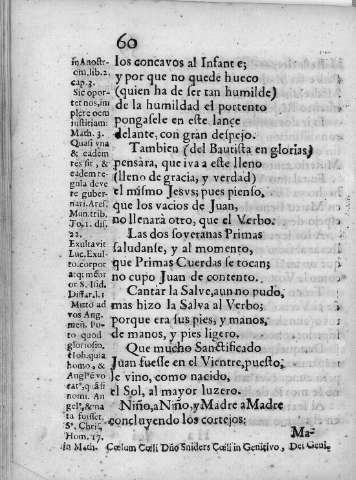 60
los concavos al Infante;
y por que no quede hueco
(quien ha de ser tan humilde)
de la humildad el portento
pongasele en este lance
delante, con gran despejo.
Tambien (del Bautista en glorias)
pensàra, que iva a este lleno
(lleno de gracia, y verdad)
el mismo Jesvs; pues pienso,
que los vacios de Juan,
no llenarà otro, que el Verbo.
Las dos soveranas Primas
saludanse, y al momento,
que Primas Cuerdas se tocan;
no cupo Juan de contento.
Cantar la Salve, aun no pudo,
mas hizo la Salva al Verbo;
porque era sus pies, y manos,
de manos, y pies ligero.
Que mucho Sanctificado
Juan fuesse en el Vientre, puesto,
le vino, como nacido,
el Sol, al mayor luzero.
Niño, a Niño, y Madre a Madre
concluyendo los cortejos:
Ma-
in Anostr-
om, lib. 2.
cap. 3.
Sic opor-
tet nos, im
plere oem
iustitiam:
Math. 3.
Quasi vna
& eadem
res sit, &
eadem re-
gula deve
re guber-
nari. Ares.
Mun. trib.
To. 1. dis.
22.
Exultavit
Luc. Exul-
to. corpor
S. Isid.
Differ. l. 1
Mitto ad
vos Ang.
meū. Po-
to quod
gloriosio.
homo, &
nomi. An
gel', & na
ta fuisset.
S. Chris.
Hom. 17.
in Math.
Cœlum Cœli Dño Sniders Cœli in Genitivo, Dei Geni-